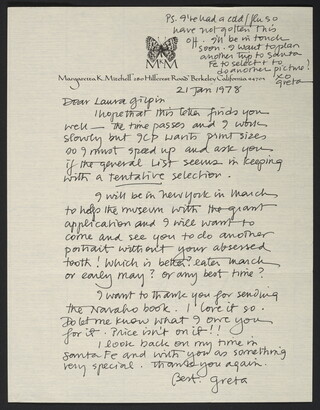 Ps. I've had a cold/flu so
have not gotten this
off. I'll be in touch
soon. I want to plan
another trip to Santa
Fe to select & to
do another picture!
xo
Greta
M M S
Margaretta K. Mitchell 280 Hillcrest Road Berkeley California 94705
21 Jan 1978
Dear Laura Gilpin
I hope that this letter finds you
well — the time passes and I work
slowly but ICP wants print sizes
so I must speed up and ask you
if the general list seems in keeping
with a tentative selection.
I will be in New York in March
to help the museum with the grant
application and I will want to
come and see you to do another
portrait without your abscessed
tooth! Which is better? later March
or early May? or any best time?
I want to thank you for sending
the Navaho book. I love it so.
Do let me know what I owe you
for it. Price isn't on it!!
I look back on my time in
Santa Fe and with you as something
very special. Thank you again.
Best. Greta